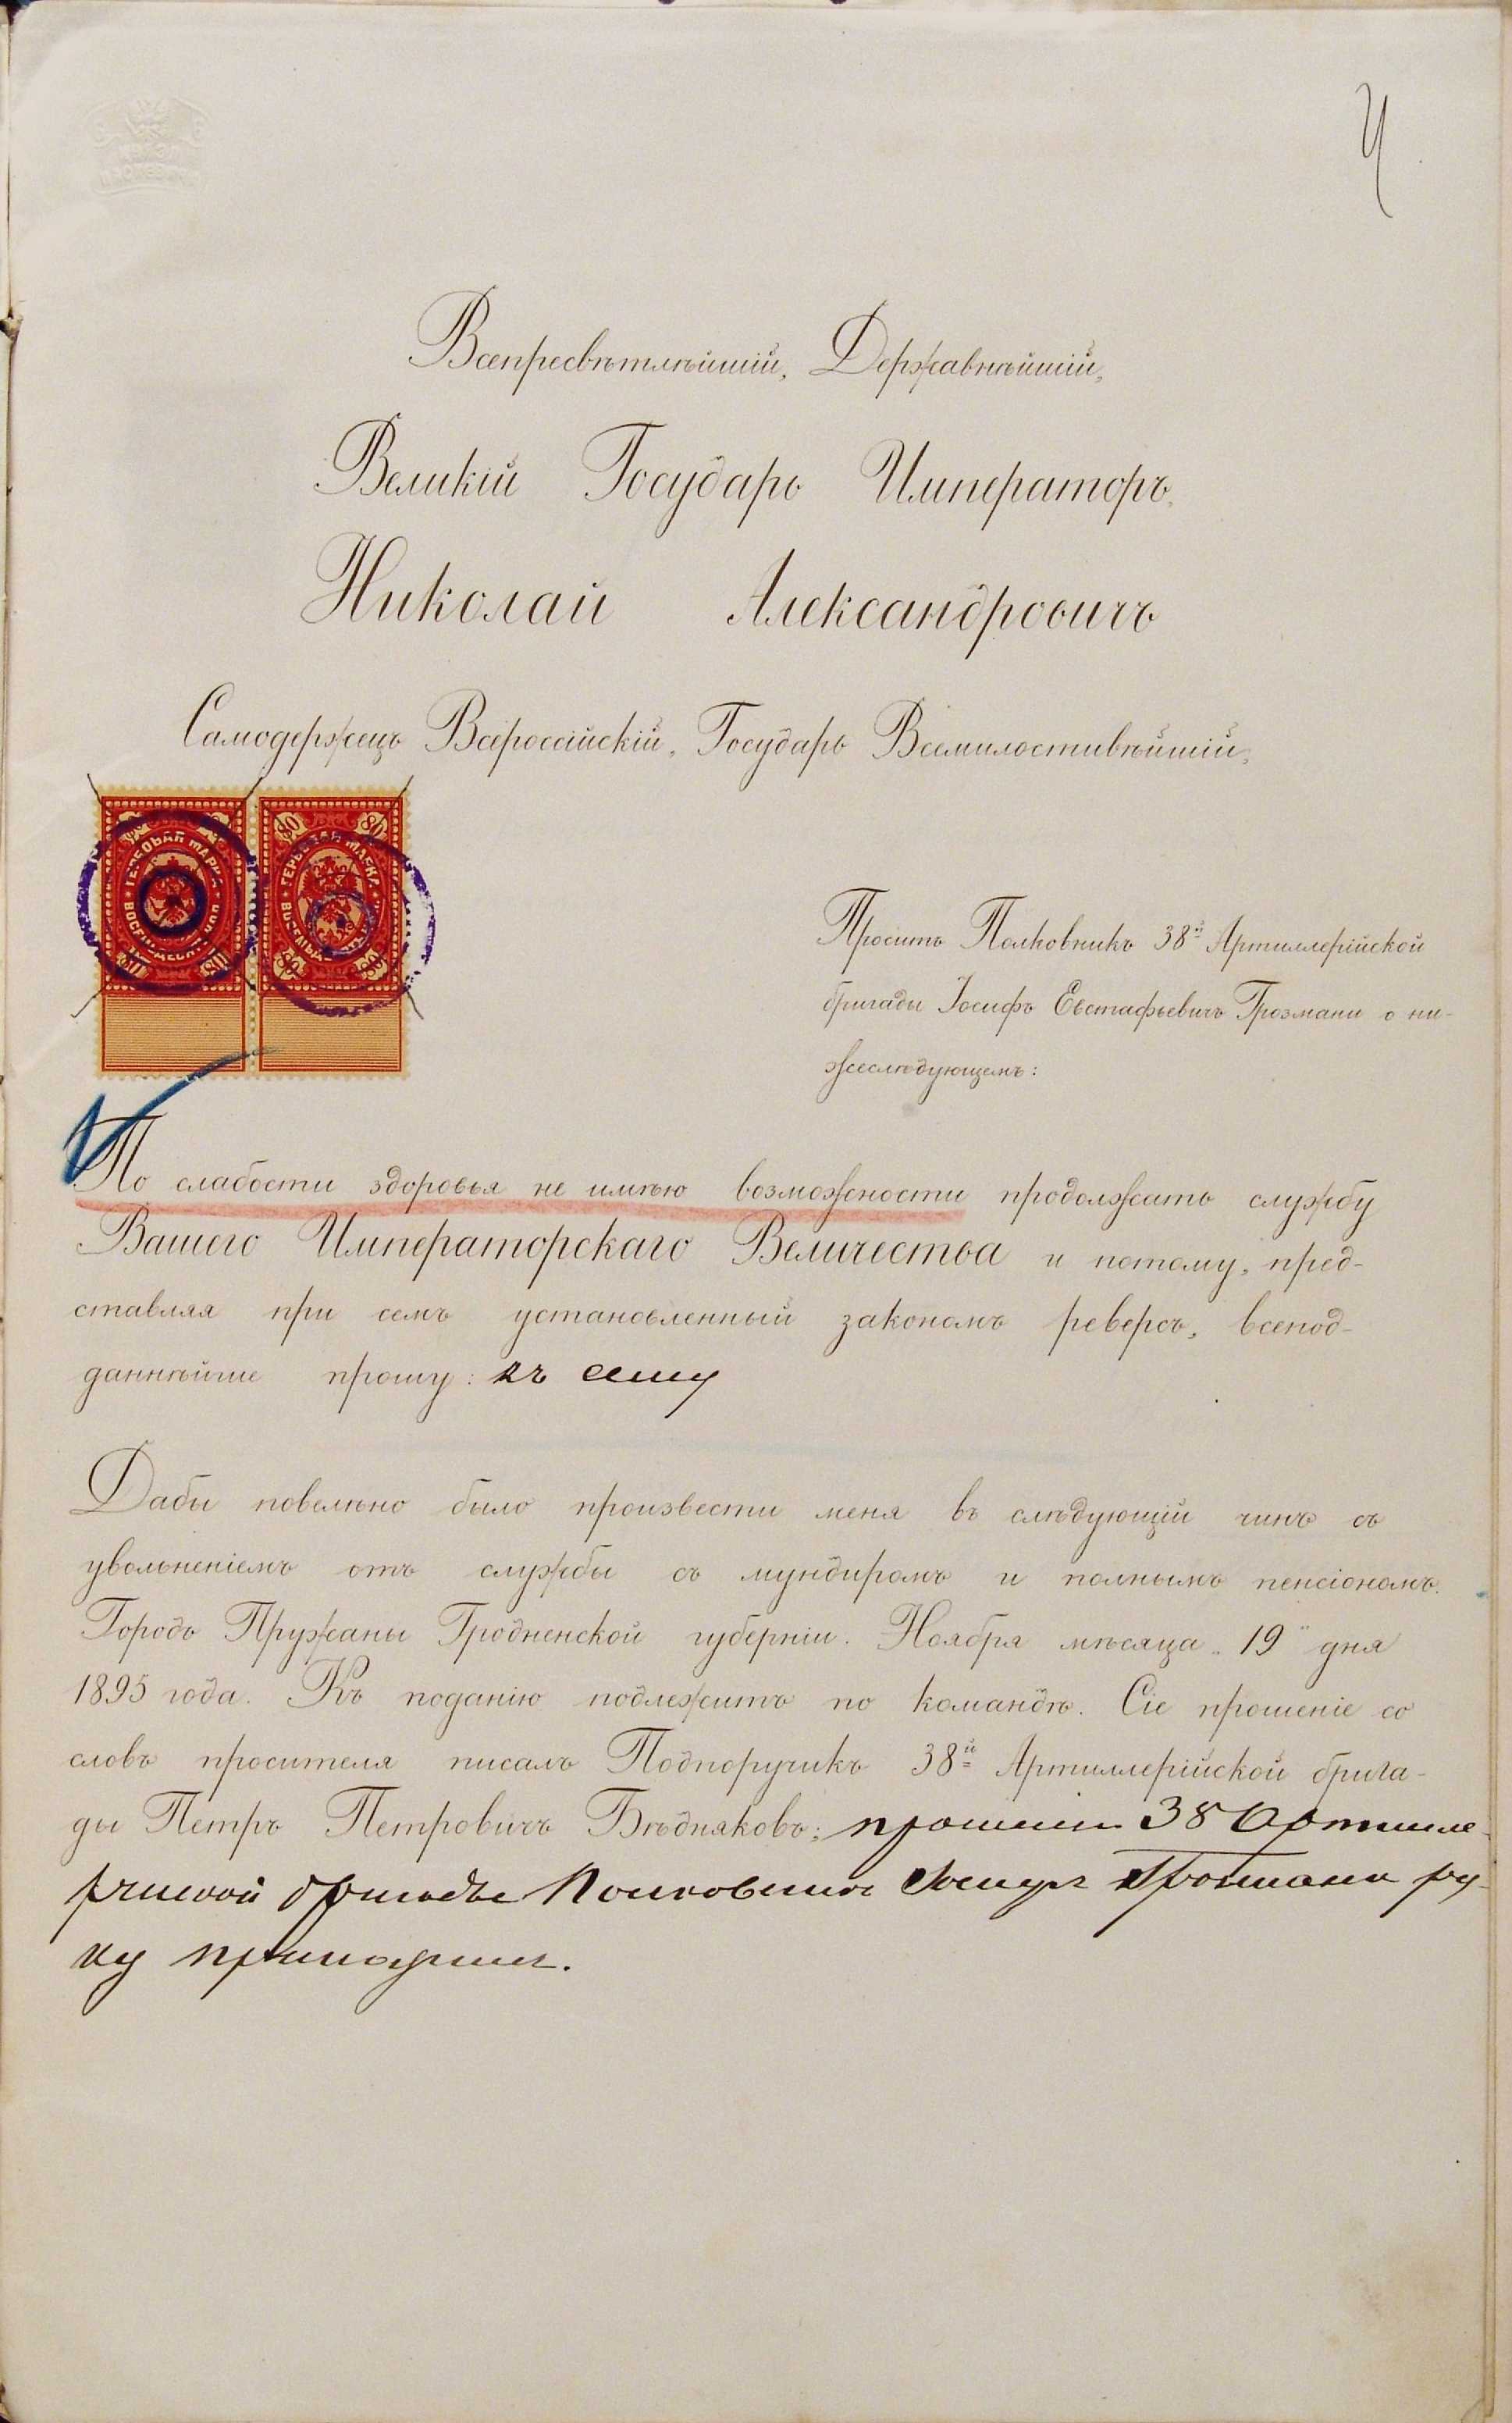 4
Всепресвѣтлѣйшій, Державнѣйшій,
Великій Государь Императоръ,
Николай Александровичъ
Самодержецъ Всероссійскій, Государь Всемилостивѣйшій,
ГЕРБОВАЯ МАРКА ВОСЕМЬДЕСЯТЪ КОП.
80 80
ГЕРБОВАЯ МАРКА
80 80
Проситъ Полковникъ 38й Артиллерійской
бригады Іосифъ Евстафьевичъ Грозмани о ни-
жеслѣдующемъ:
По слабости здоровья не имѣю возможности продолжать службу
Вашего Императорскаго Величества и потому, пред-
ставляя при семъ установленный закономъ реверсъ, всепод-
даннѣйше прошу: къ сему
Дабы повелѣно было произвести меня въ слѣдующій чинъ съ
увольненіемъ отъ службы съ мундиромъ и полнымъ пенсіономъ.
Городъ Пружаны Гродненской губерніи. Ноября мѣсяца „19" дня
1895 года. Къ поданію подлежитъ по командѣ. Сіе прошеніе со
словъ просителя писалъ Подпоручикъ 38й Артиллерійской брига-
ды Петръ Петровичъ Бѣдняковъ; прошенію 38 Артилле-
рійской бригады Полковникъ Іосифъ Грозмани ру-
ку приложилъ.